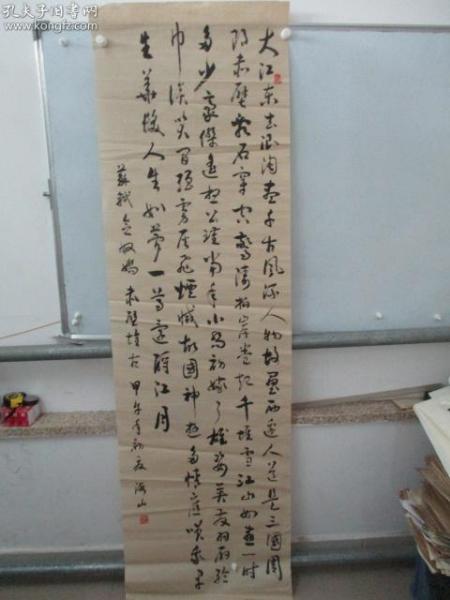 孔夫子旧书网
www.kongfz.com
大江东去浪淘尽千古风流人物故垒西边人道是三國周
郎赤壁乱石穿空惊涛拍岸卷起千堆雪江山如画一时
多少豪傑遥想公瑾当年小乔初嫁了雄姿英发羽扇纶
巾谈笑间强虏灰飞煙滅故國神遊多情應笑我早
生華发人生如梦一尊還酹江月
蘇軾念奴娇 赤壁懷古 甲午年初夏 海山